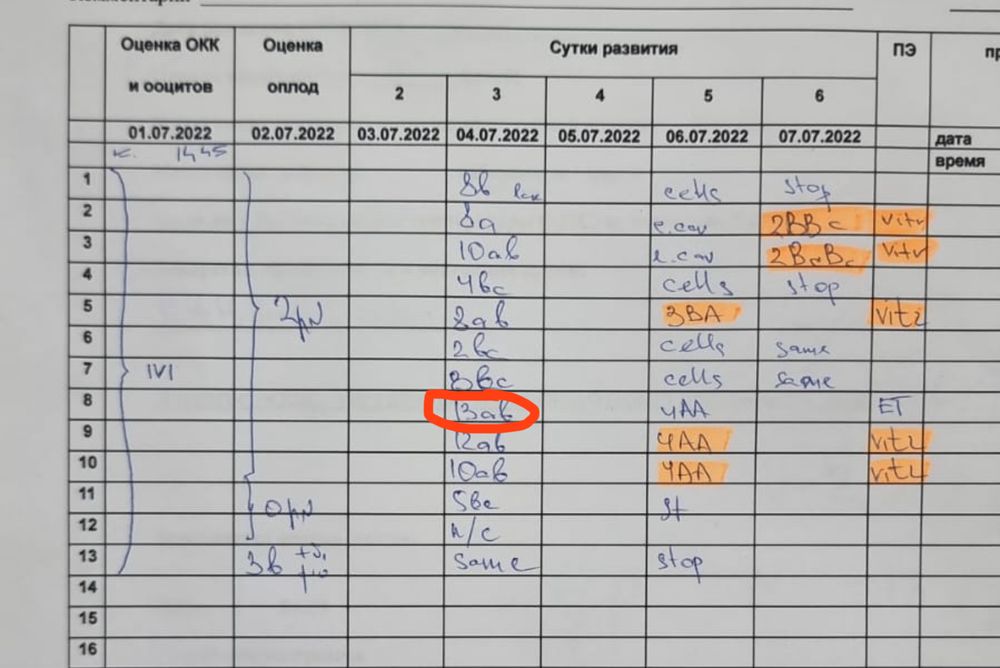 Оценка ОКК и ооцитов Оценка оплод Сутки развития ПЭ
2 3 4 5 6
01.07.2022 02.07.2022 03.07.2022 04.07.2022 05.07.2022 06.07.2022 07.07.2022 дата
1445 время
1 8b cells stop
2 8a e.cav 2BBc vitr
3 10ab e.cav 2BcBc vitr
4 4bc cells stop
5 2pN 8ab 3BA vitr
6 2bc cells same
7 IVI 8bc cells same
8 13ab 4AA ET
9 12ab 4AA vitr
10 10ab 4AA vitr
11 0pN 5bc st
12 n/c
13 3в same stop
14
15
16